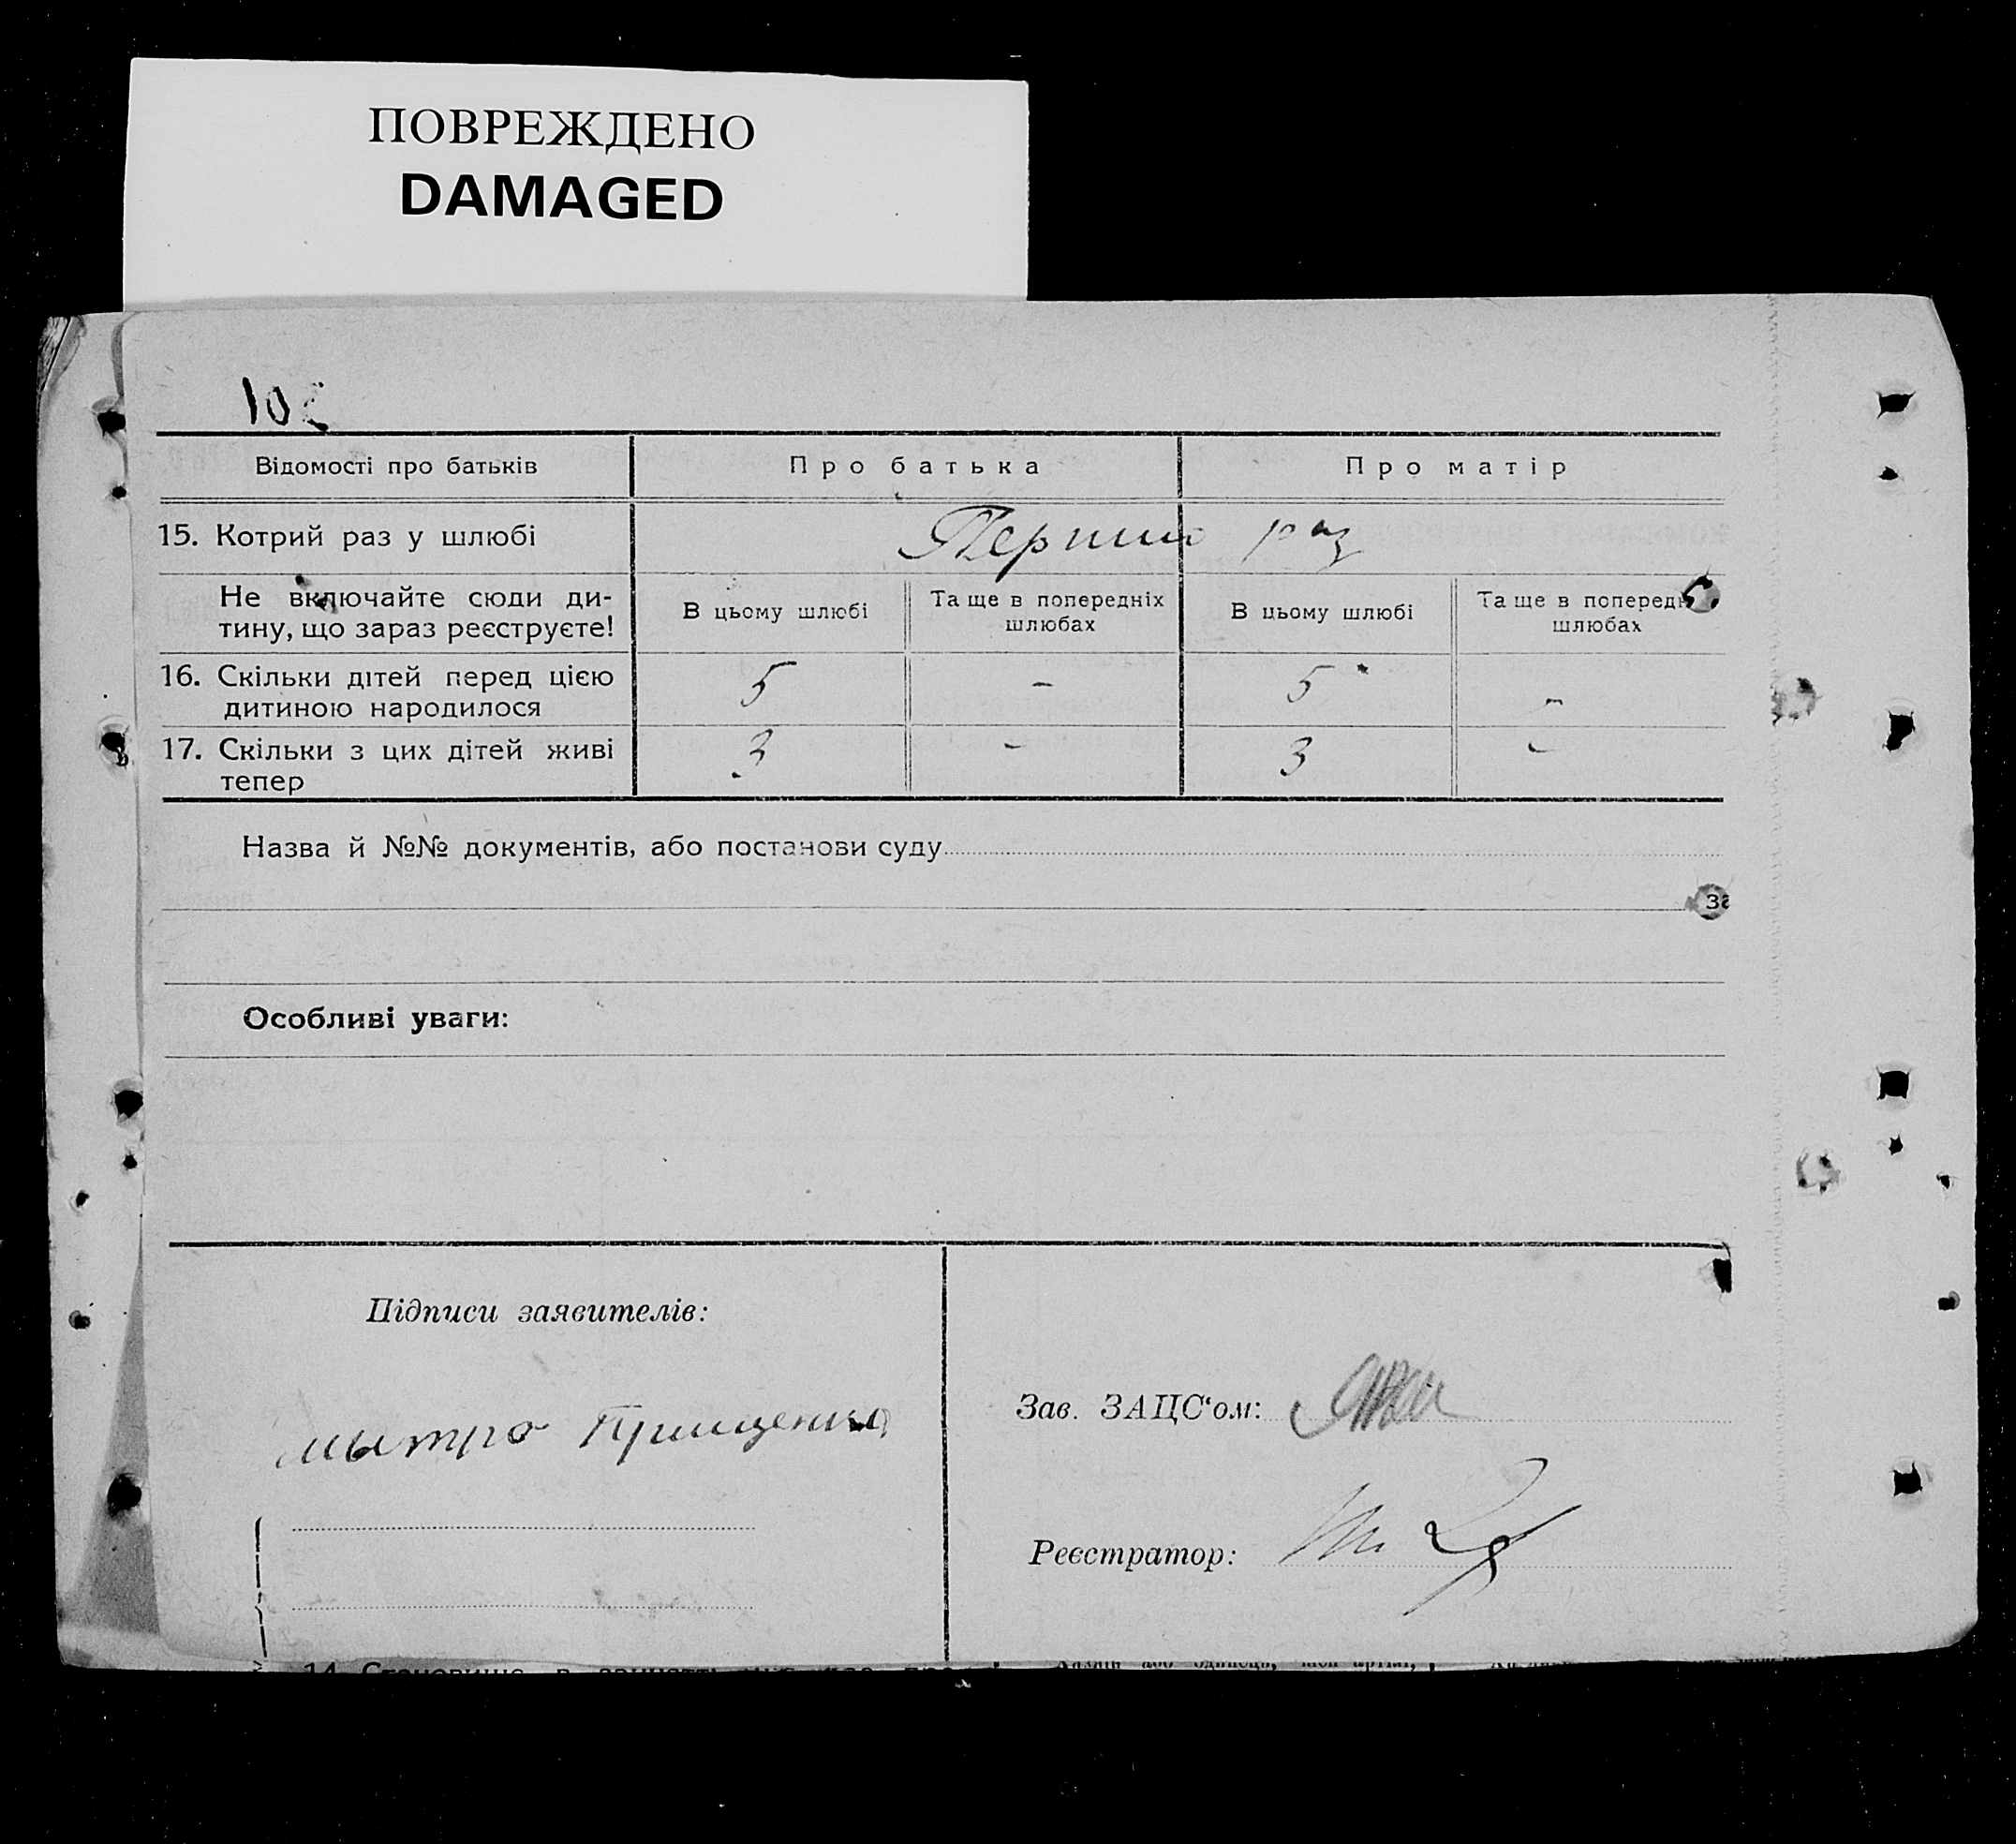 ПОВРЕЖДЕНО
DAMAGED
Відомості про батьків
Про батька
Про матір
15. Котрий раз у шлюбі
Перший раз
Не включайте сюди ди-
тину, що зараз реєструєте!
В цьому шлюбі
Та ще в попередніх
шлюбах
В цьому шлюбі
Та ще в
шлюбах
16. Скільки дітей перед цією
дитиною народилося
5
-
5
-
17. Скільки з цих дітей живі
тепер
3
-
3
-
Назва й №№ документів, або постанови суду
за
Особливі уваги:
Підписи заявителів:
Зав. ЗАЦС‘ом:
мытро Прищенко
Реєстратор: